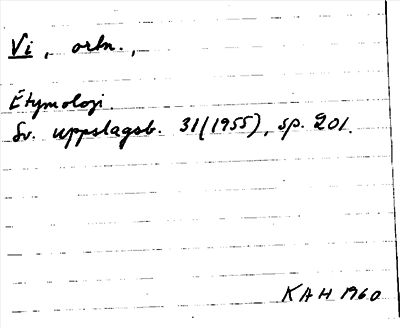 Vi, ortn.,
Etymologi.
Sv. uppslagsb. 31(1955), sp. 201.
KAH 1960